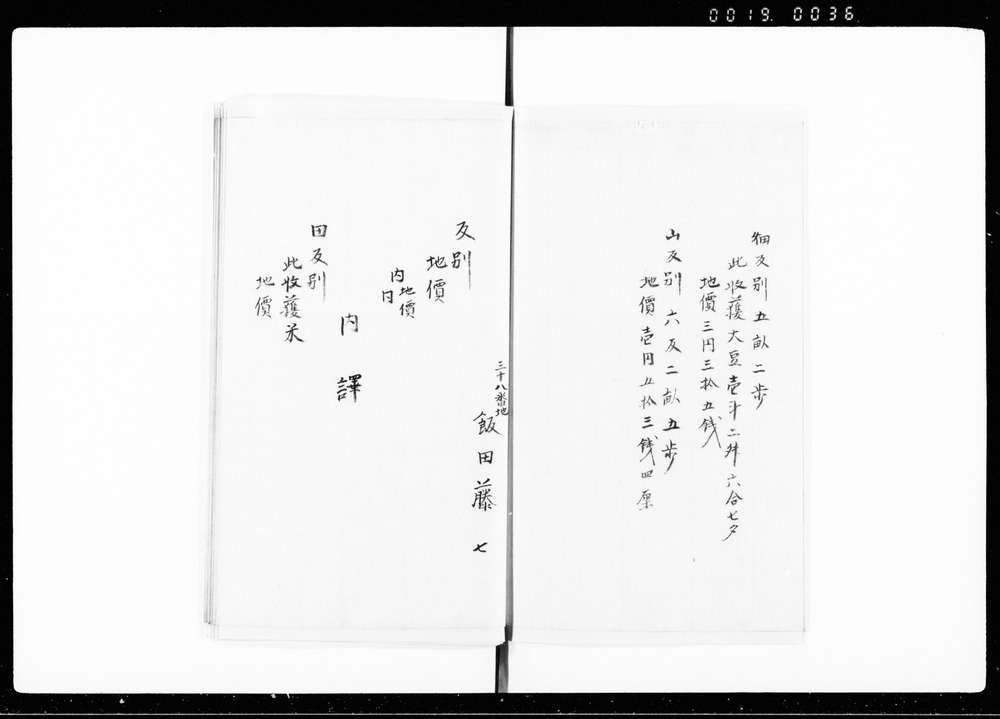 0019 0036
畑反別五畝二歩
此收穫大豆壱斗二舛六合七夕
地價三円三拾五銭
山反別六反二畝五歩
地價壱円五拾三銭四厘
三十八番地
飯田藤七
反別
地價
内地價
内
内譯
田反別
此收穫米
地價